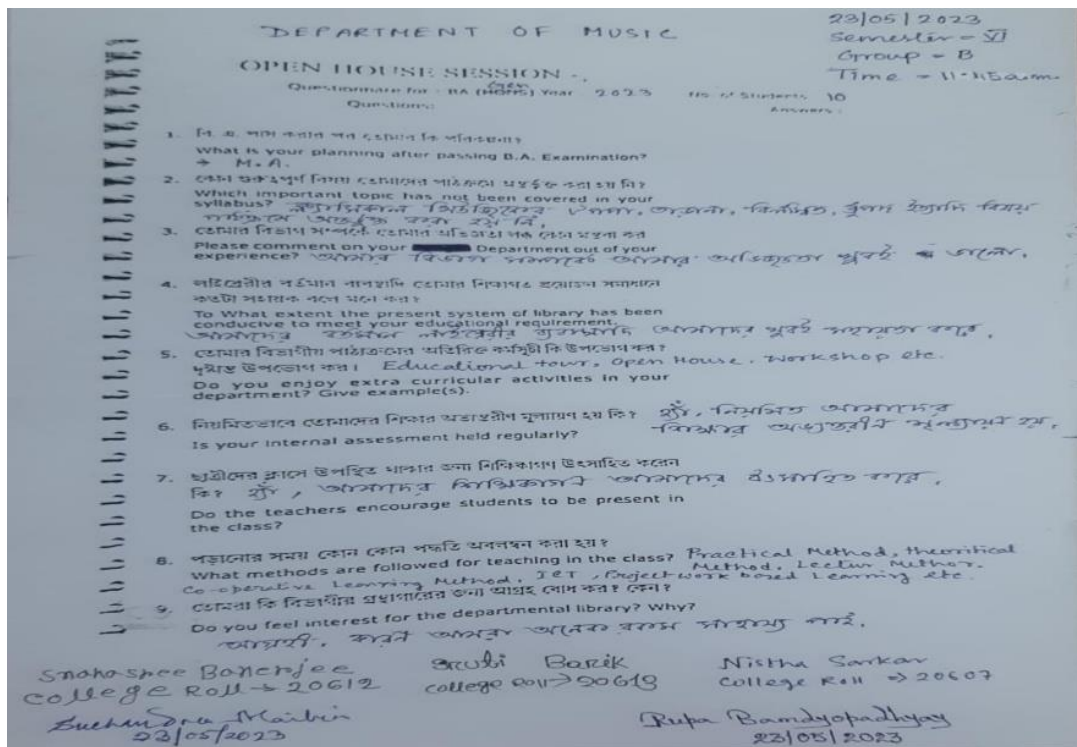 DEPARTMENT OF MUSIC
23/05/2023
Semester - VI
Group - B
Time - 11.45a.m.
OPEN HOUSE SESSION
Questionnare for : BA (Gen) Year 2023 No of Students 10
Questions: Answers:
1. বি. এ. পাস করার পর তোমার কি পরিকল্পনা?
What is your planning after passing B.A. Examination?
→ M.A.
2. কোন গুরুত্বপূর্ণ বিষয় তোমাদের পাঠক্রমে অন্তর্ভুক্ত করা হয় নি?
Which important topic has not been covered in your
syllabus? ঠুংরী, তারানা, ধ্রুপদ ইত্যাদি বিষয়
অন্তর্ভুক্ত করা হয় নি,
3. তোমার বিভাগ সম্পর্কে তোমার অভিজ্ঞতা কর
Please comment on your Department out of your
experience? আমার বিভাগ সম্পর্কে আমার অভিজ্ঞতা খুবই ভালো,
4. লাইব্রেরীর বর্তমান ব্যবস্থাদি তোমার শিক্ষাগত প্রয়োজন সমাধানে
কতটা সহায়ক বলে মনে কর?
To What extent the present system of library has been
conducive to meet your educational requirement.
আমাদের বর্তমান লাইব্রেরীর ব্যবস্থাদি আমাদের খুবই সহায়তা করে,
5. তোমার বিভাগীয় পাঠ্যক্রমের অতিরিক্ত কর্মসূচী কি উপভোগ কর?
দৃষ্টান্ত উপভোগ কর। Educational tour, Open House, Workshop etc.
Do you enjoy extra curricular activities in your
department? Give example(s).
6. নিয়মিতভাবে তোমাদের শিক্ষার অভ্যন্তরীণ মূল্যায়ণ হয় কি? হ্যাঁ, নিয়মিত আমাদের
Is your internal assessment held regularly? শিক্ষার অভ্যন্তরীণ মূল্যায়ন হয়,
7. ছাত্রীদের ক্লাসে উপস্থিত থাকার জন্য শিক্ষিকাগণ উৎসাহিত করেন
কি? হ্যাঁ, আমাদের শিক্ষিকাগণ আমাদের উৎসাহিত করে,
Do the teachers encourage students to be present in
the class?
8. পড়ানোর সময় কোন কোন পদ্ধতি অবলম্বন করা হয়?
What methods are followed for teaching in the class? Practical Method, theoritical
Method, Lectur Method,
Co-operative Learning Method, ICT, Project work based Learning etc.
9. তোমরা কি বিভাগীয় গ্রন্থাগারের জন্য আগ্রহ বোধ কর? কেন?
Do you feel interest for the departmental library? Why?
আগ্রহী, কারন আমরা অনেক রকম সাহায্য পাই.
Snahashee Banerjee
College Roll → 20612
Srubi Barik
College Roll → 20613
Nistha Sarkar
College Roll → 20607
Suchandra Maiti
23/05/2023
Rupa Bamdyopadhyay
23/05/2023